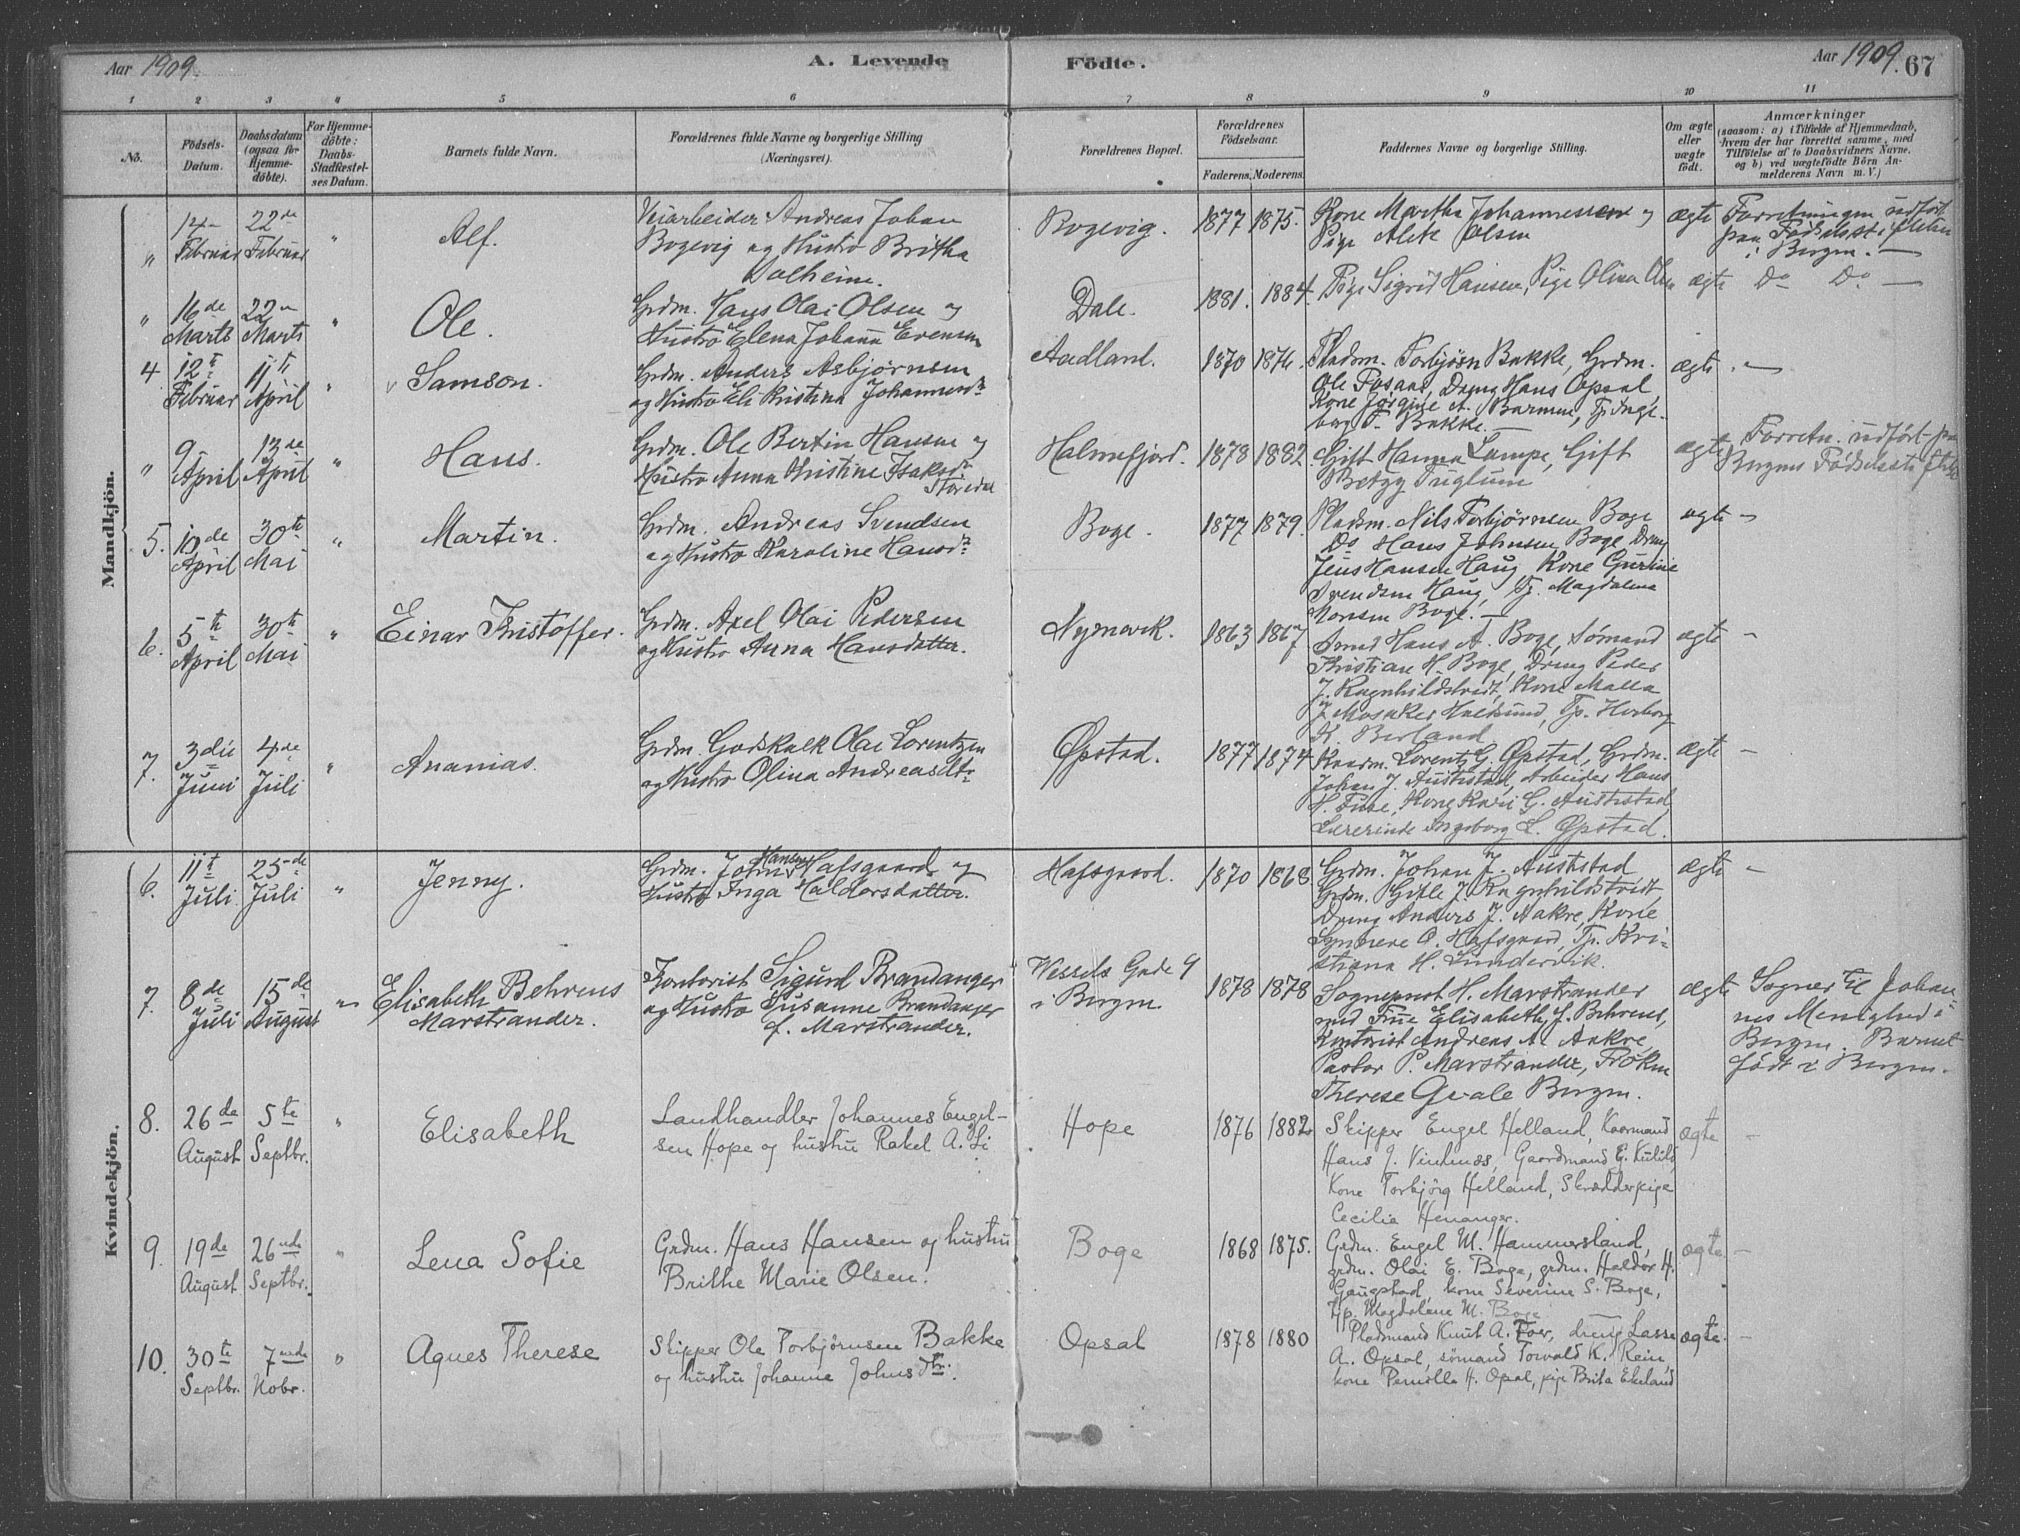 Aar 1909. A. Levende Födte. Aar 1909. 67
1 2 3 4 5 6 7 8 9 10 11
No. Födsels-Datum. Daabsdatum (ogsaa for Hjemme-döbte). For Hjemme-döbte: Daabs-Stadfæstel-ses Datum. Barnets fulde Navn. Forældrenes fulde Navne og borgerlige Stilling (Næringsvei). Forældrenes Bopæl. Forældrenes Födselsaar. Faderens. Moderens. Faddernes Navne og borgerlige Stilling. Om ægte eller uægte födt. Anmærkninger (saasom: a) i Tilfælde af Hjemmedaab, hvem der har forrettet samme, med Tilföielse af to Daabsvidners Navne, og b) ved uægtefödte Börn An-melderens Navn m. V.)
Mandkjön.
" 14de Februar 22de Februar " Alf. Veiarbeider Andreas Johan
Bogevig og Hustro Britha
Dalheim.
Bogevig. 1877 1875. Kone Martha Johannessen og
Pige Alek Olsen
ægte Forretningen udført
paa Fødselsstiftelsen
i Bergen. —
" 16de Marts 22de Marts " Ole. Grdm. Hans Olai Olsen og
Hustro Elena Johanna Evensen
Dale. 1881. 1884. Pige Sigrid Hansen, Pige Olina Olsen ægte Do Do —
4. 12te Februar 11te April " Samson. Grdm. Anders Asbjørnsen
og Hustro Eli Kristina Johannesdr.
Aadland. 1870 1876. Pladsm. Torbjørn Bakke, Grdm.
Ole Fosaas, Dreng Hans Opsal
Kone Jørgine A. Barmen, Tj. Inge-
borg T. Bakke. —
ægte —
" 9de April 13de April " Hans. Grdm. Ole Bertin Hansen og
Hustro Anna Kristine Isaksdr.
Storedal
Halmefjord. 1878 1882. Gift Hanna Lampe, Gift
Betzy Fuglum
ægte Forretn. udført paa
Bergens Fødselsstiftelse
5. 10de April 30te Mai " Martin. Grdm. Andreas Svendsen
og Hustro Karoline Hansdr.
Boge. 1877 1879. Pladsm. Nils Torbjørnsen Boge
Do Hans Johnsen Boge, Dreng
Jens Hansen Haug, Kone Gurine
Svendsen Haug, Tj. Magdalena
Monsen Boge. —
ægte —
6. 5te April 30te Mai " Einar Kristoffer. Grdm. Axel Olai Pedersen
og Hustro Anna Hansdatter.
Nymark. 1863 1867 Smed Hans A. Boge, Sømand
Kristian H. Boge, Dreng Peder
J. Ragnhildstveit, Kone Malla
J. Mosaker Hulsund, Tp. Herborg
K. Berland
ægte —
7. 3die Juni 4de Juli " Ananias. Grdm. Godskalk Olai Lorentzen
og Hustro Olina Andreasdtr.
Øpstad. 1877 1874 Kaarm. Lorentz G. Øpstad, Grdm.
Johan J. Austestad, Arbeider Hans
H. Fuse, Kone Kari G. Austestad,
Lærerinde Ingeborg L. Øpstad.
ægte —
Kvindekjön.
6. 11te Juli 25de Juli " Jenny. Grdm. John Hansen Hafsgaard og
Hustro Inga Haldorsdatter.
Hafsgaard. 1870 1868 Grdm. Johan J. Austestad
Grdm. Gitle J. Ragnhildstveit,
Dreng Anders J. Aakre, Kone
Synneve O. Hafsgaard, Tp. Kri-
stiana H. Sundervik.
ægte —
7. 8de Juli 15de August " Elisabeth Behrens
Marstrander.
Kontorist Sigurd Brandanger
og Hustro Susanne Brandanger
f. Marstrander.
Wessels Gade 9
i Bergen
1878 1878 Sogneprest H. Marstrander
med Frue Elisabeth, f. Behrens,
Kontorist Andreas A. Aakre,
Pastor P. Marstrander, Frøken
Therese Gvale Bergen.
ægte Sogner til Johan-
nes Menighed i
Bergen. Barnet
født i Bergen.
8. 26de August 5te Septbr. " Elisabeth Landhandler Johannes Engel-
sen Hope og hustru Rakel A. Li
Hope 1876 1882. Skipper Engel Helland, Kaarmand
Hans J. Vindnæs, Gaardmand E. Kulild
Kone Torbjørg Helland, Skrædderpige
Cecilia Henanger.
ægte —
9. 19de August 26nde Septbr. " Lena Sofie Grdm. Hans Hansen og hustru
Brithe Marie Olsen.
Boge 1868 1875. Grdm. Engel M. Hammersland,
grdm. Olai E. Boge, grdm. Haldor H.
Gaugstad, kone Severine S. Boge,
Tjp. Magdalene M. Boge
ægte. —
10. 30te Septbr. 7nde Nobr. " Agnes Therese Skipper Ole Torbjørnsen Bakke
og hustru Johanne Johnsdtr.
Opsal 1878 1880 Pladsmand Knut A. Toer, dreng Lasse
A. Opsal, sømand Torvald K. Rein
kone Pernille H. Opsal, pige Brita Ekeland
ægte. —